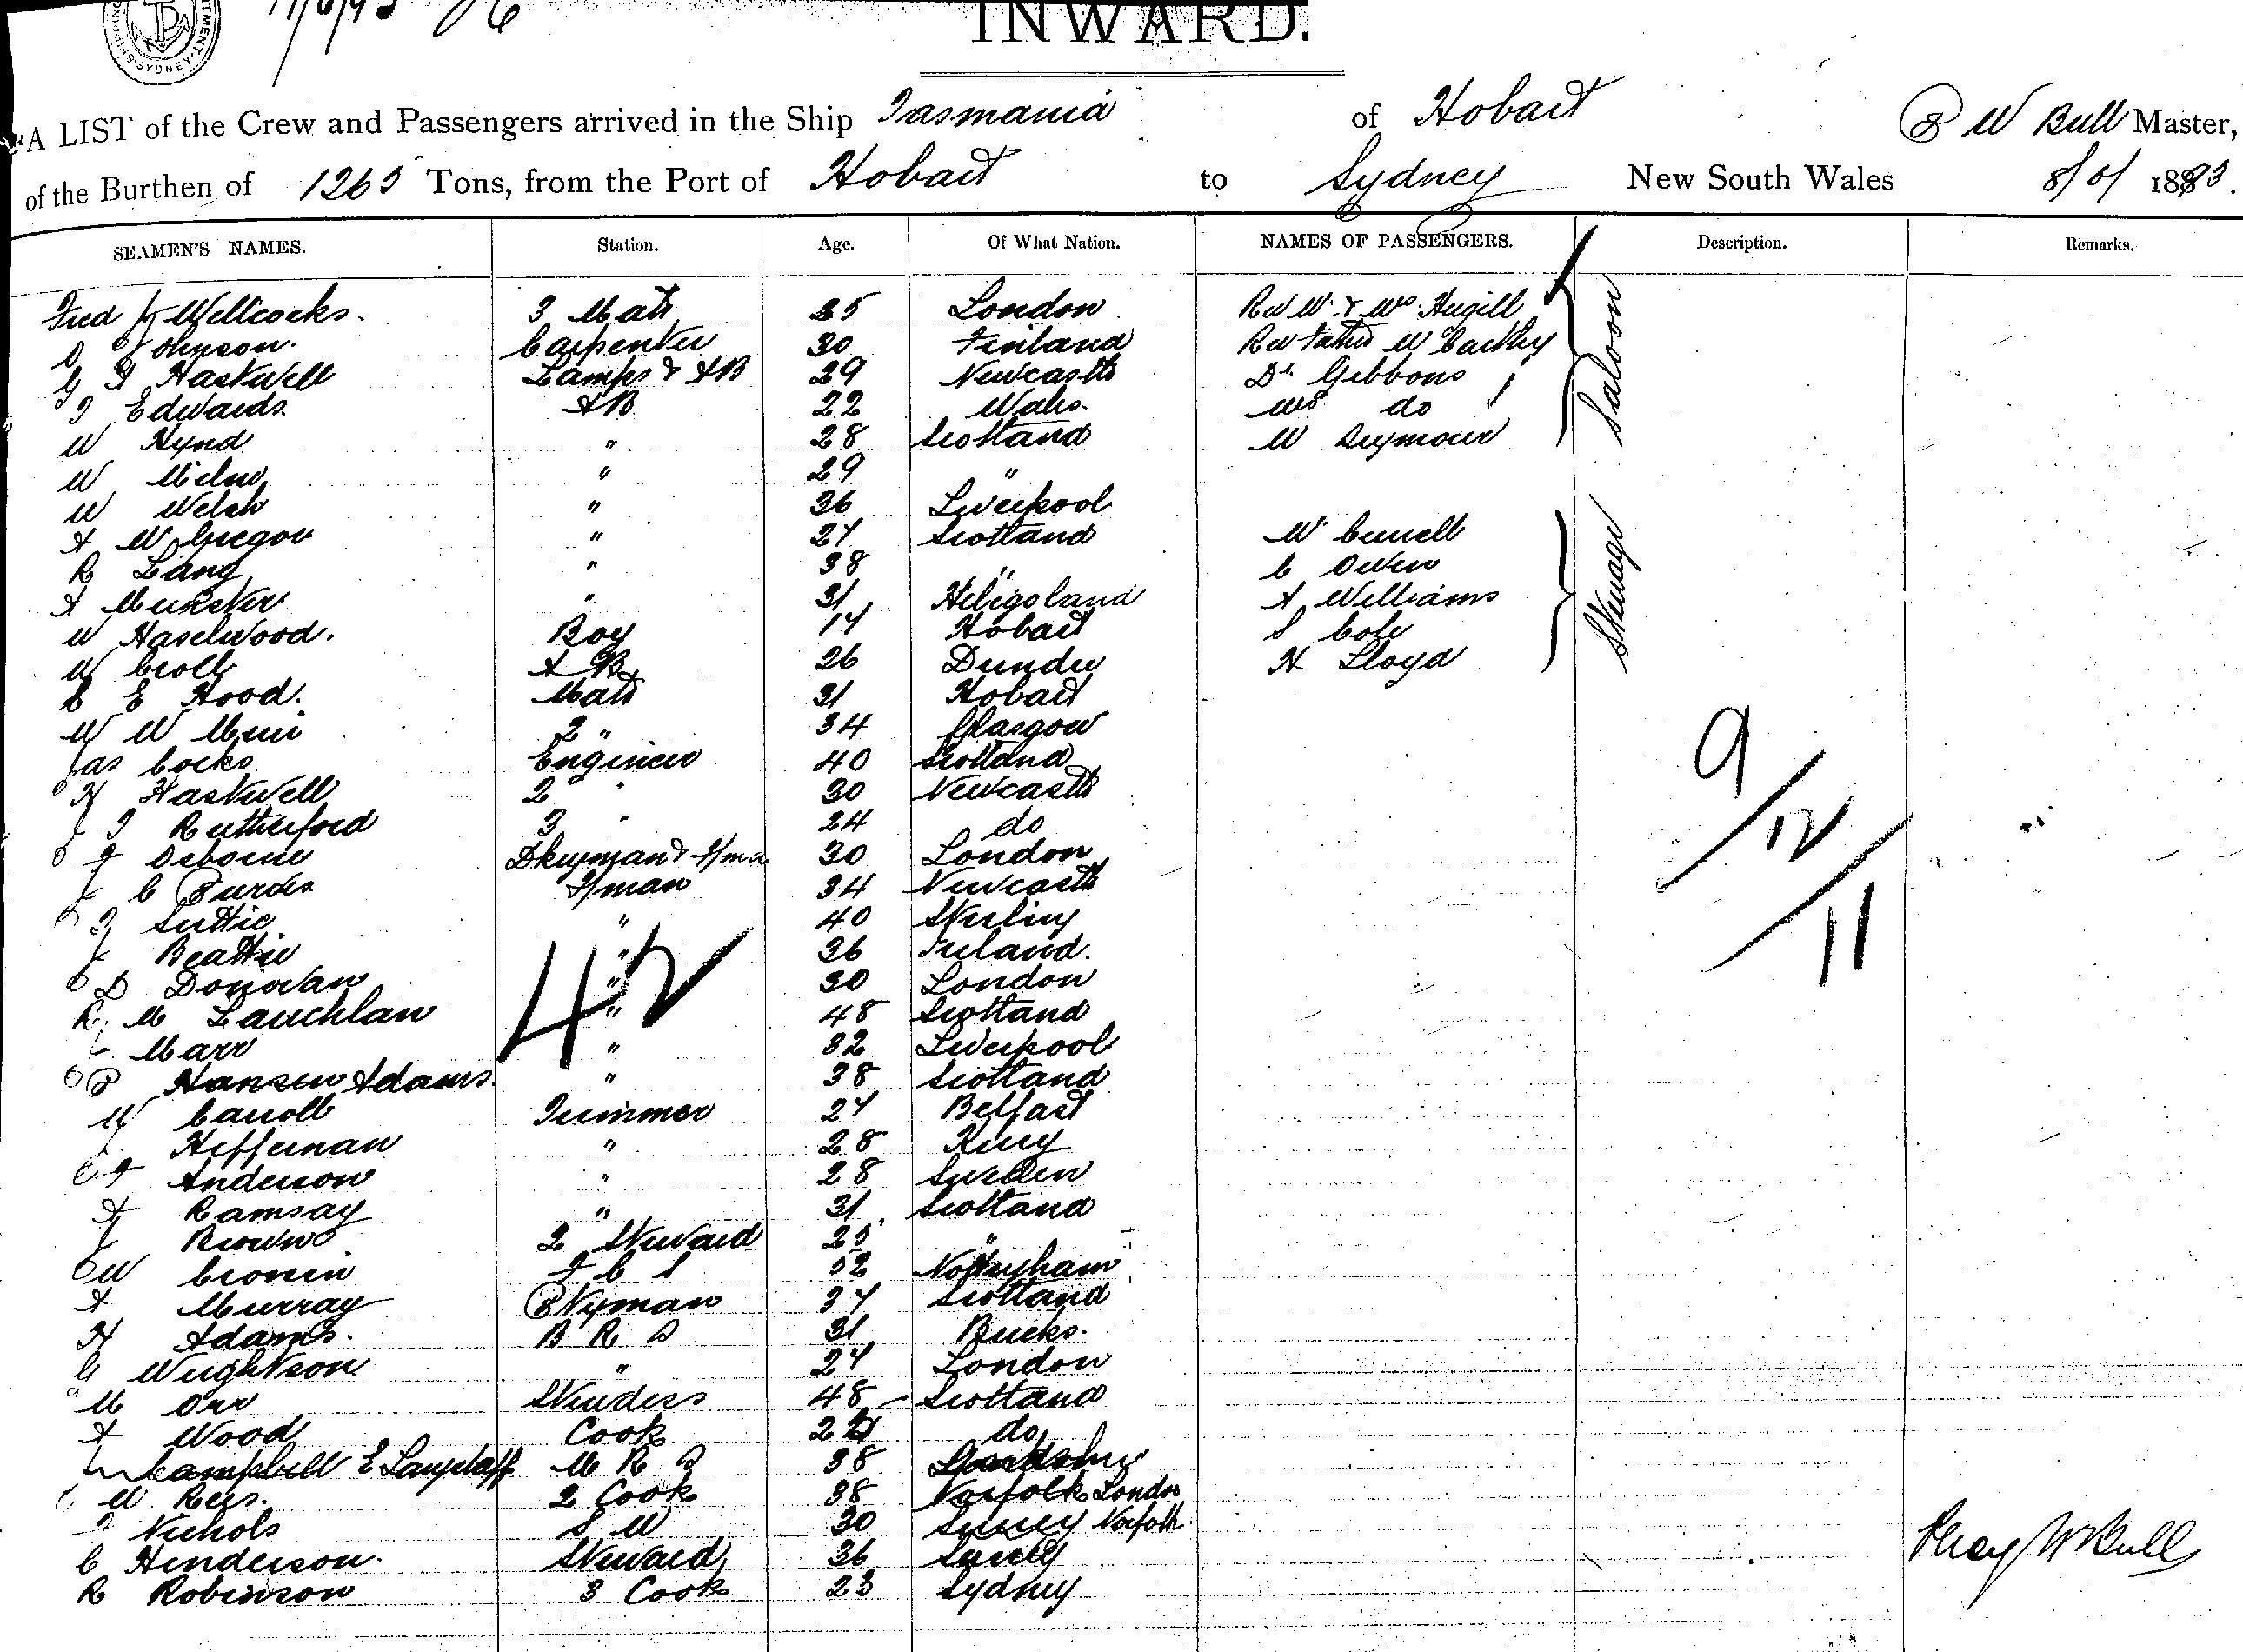 INWARD.
A LIST of the Crew and Passengers arrived in the Ship Tasmania of Hobart W Bull Master,
of the Burthen of 1265 Tons, from the Port of Hobart to Sydney New South Wales 1893.
SEAMEN'S NAMES. Station. Age. Of What Nation. NAMES OF PASSENGERS. Description. Remarks.
Fred Wellcocks. 3 Mate 25 London Rev W. & Mrs Hugill Saloon
Johnson. Carpenter 30 Finland Rev Father McCarthy
G Haskwell Lamps & AB 29 Newcastle Dr Gibbons
Edwards AB 22 Wales. Mrs do
W Hynd " 28 Scotland W Seymour
W Milne " 29 "
W Welsh " 36 Liverpool
A McGregor " 27 Scotland W Currell Steerage
R Lang " 38 " C Owen
A Munster " 31 Heligoland A Williams
W Haselwood. Boy 14 Hobart S Cole
W Croll AB 26 Dundee H Lloyd
C E Hood. Mate 31 Hobart
W W Muir 2 " 34 Glasgow
Jas Cocks Engineer 40 Scotland 9/12/11
H Haskwell 2 " 30 Newcastle
Rutherford 3 " 24 do
Osborne Dkeyman & F/man 30 London
J C Purdes F/man 34 Newcastle
Suttie " 40 Sterling
J Beattie " 36 Ireland.
D Donovan " 30 London
R Mc Lauchlan " 48 Scotland
Marr " 32 Liverpool
Hansen Adams. " 38 Scotland
42
M Carroll Trimmer 27 Belfast
Heffernan " 28 Kerry
Anderson " 28 Sweden
A Ramsay " 31 Scotland
J Brown 2 Steward 25 "
W Cronin F C S 52 Nottingham
A Murray P Nyman 37 Scotland
H Adams. B R S 31 Bucks.
G Weightson " 27 London
M Orr Stewdess 48 Scotland
A Wood Cook do
Campbell E Langstaff M R S 38
W Rees. 2 Cook 38 Norfolk London
Nichols S W 30 Surrey Norfolk
C Henderson. Steward 36 Surrey
R Robinson 3 Cook 23 Sydney
Percy W Bull